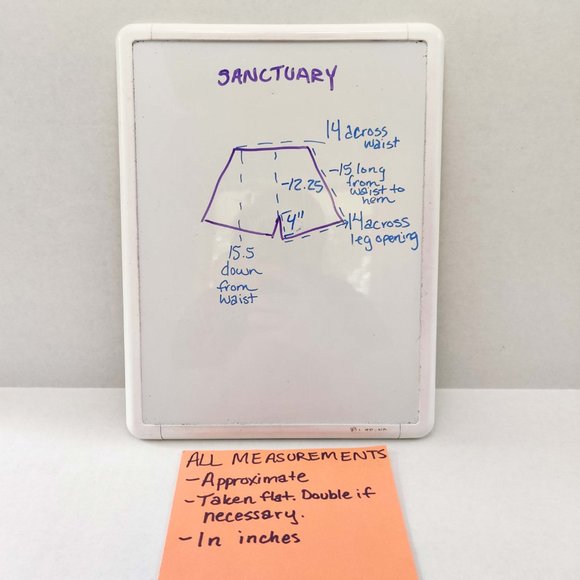 SANCTUARY
14 across
waist
-15 long
from
waist to
hem
-12.25
4"
14 across
leg opening
15.5
down
from
waist
ALL MEASUREMENTS
-Approximate
-Taken flat. Double if
necessary.
-In inches